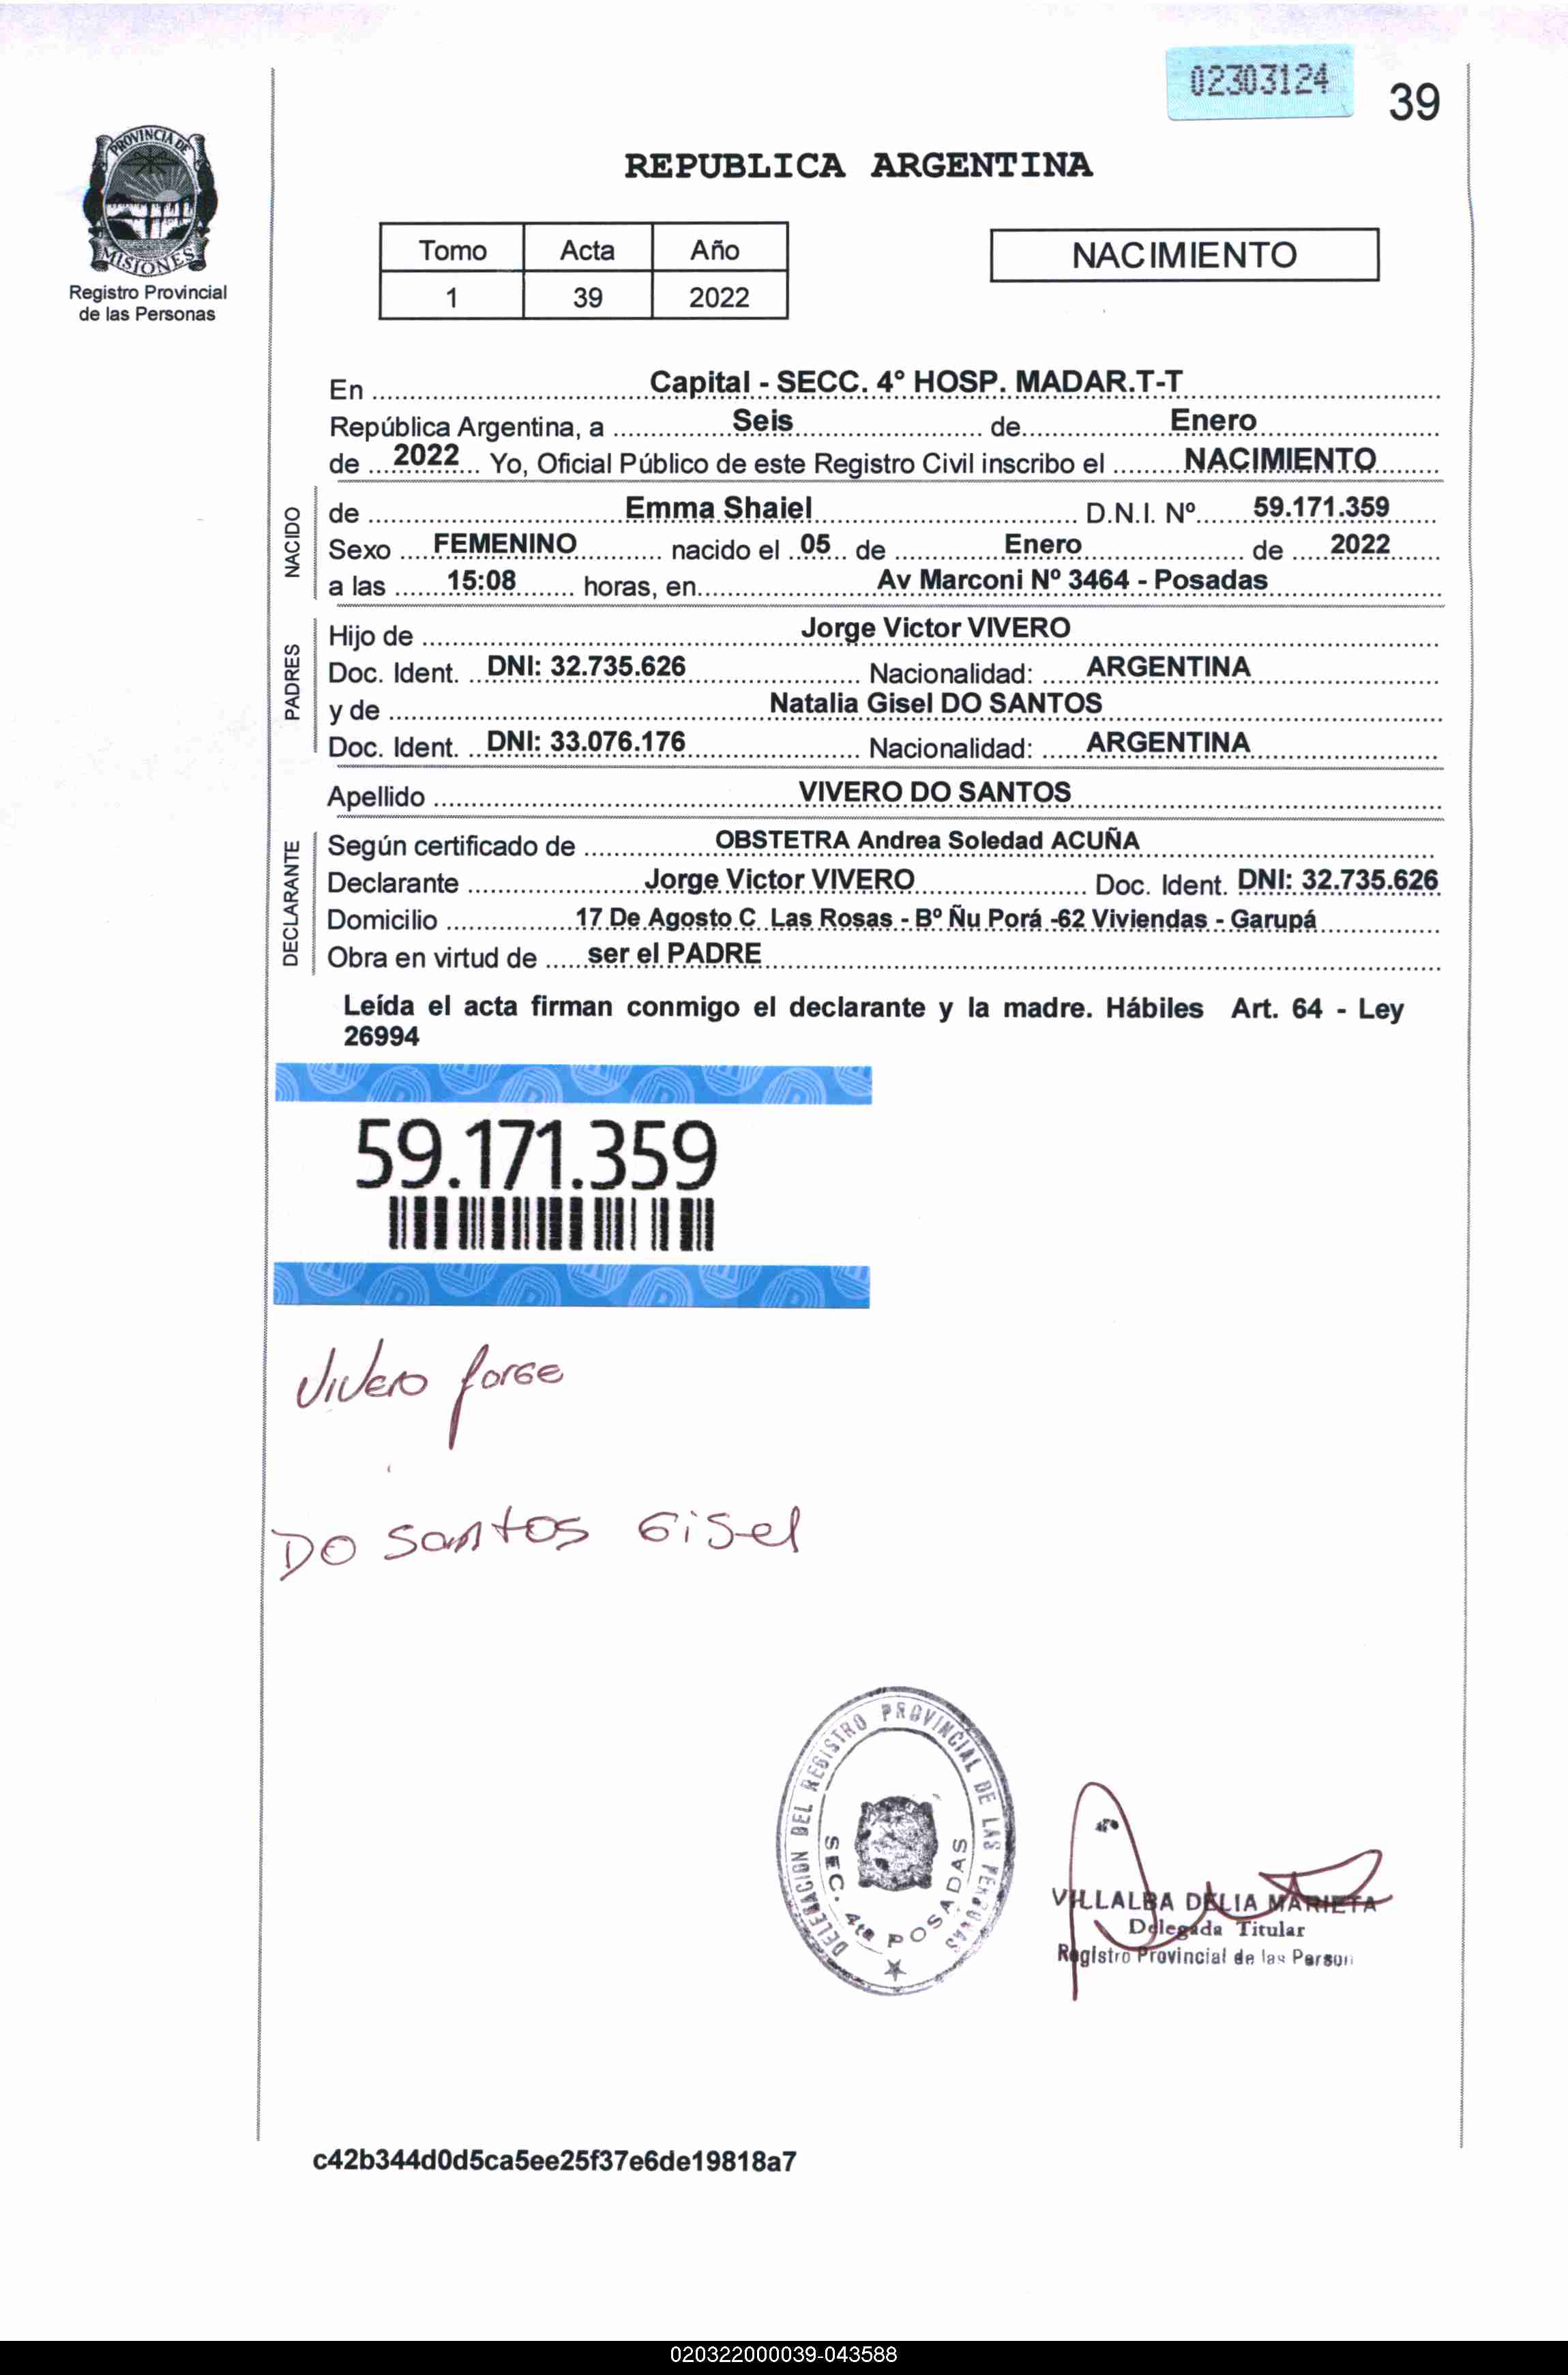 02303124
39
PROVINCIA DE
MISIONES
Registro Provincial
de las Personas
REPUBLICA ARGENTINA
Tomo Acta Año
1 39 2022
NACIMIENTO
En Capital - SECC. 4° HOSP. MADAR.T-T
República Argentina, a Seis de Enero
de 2022 Yo, Oficial Público de este Registro Civil inscribo el NACIMIENTO
NACIDO
de Emma Shaiel D.N.I. Nº 59.171.359
Sexo FEMENINO nacido el 05 de Enero de 2022
a las 15:08 horas, en Av Marconi Nº 3464 - Posadas
PADRES
Hijo de Jorge Victor VIVERO
Doc. Ident. DNI: 32.735.626 Nacionalidad: ARGENTINA
y de Natalia Gisel DO SANTOS
Doc. Ident. DNI: 33.076.176 Nacionalidad: ARGENTINA
Apellido VIVERO DO SANTOS
DECLARANTE
Según certificado de OBSTETRA Andrea Soledad ACUÑA
Declarante Jorge Victor VIVERO Doc. Ident. DNI: 32.735.626
Domicilio 17 De Agosto C Las Rosas - Bº Ñu Porá -62 Viviendas - Garupá
Obra en virtud de ser el PADRE
Leída el acta firman conmigo el declarante y la madre. Hábiles Art. 64 - Ley
26994
59.171.359
Vivero Jorge
DO Santos Gisel
DELEGACION DEL REGISTRO PROVINCIAL DE LAS PERSONAS
SEC. 4ta POSADAS
VILLALBA DELIA MARIETA
Delegada Titular
Registro Provincial de las Person
c42b344d0d5ca5ee25f37e6de19818a7
020322000039-043588